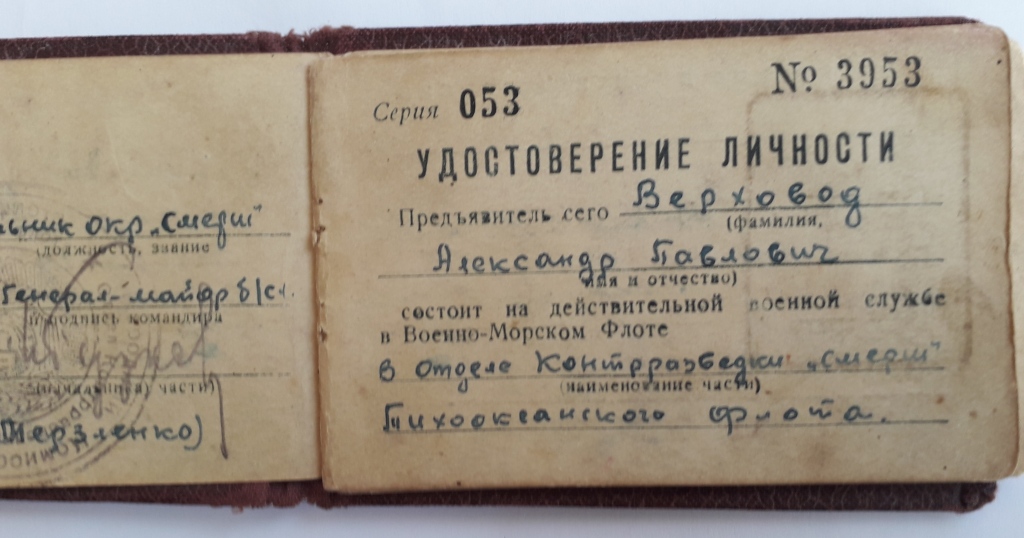 окр „Смерш"
(должность, звание
Генерал-майор б/сл.
и подпись командира
(начальника) части)
(Мерзленко)
Серия 053
№ 3953
УДОСТОВЕРЕНИЕ ЛИЧНОСТИ
Предъявитель сего Верховод
(фамилия,
Александр Павлович
имя и отчество)
состоит на действительной военной службе
в Военно-Морском Флоте
в отделе Контрразведки „Смерш"
(наименование части)
Тихоокеанского флота.